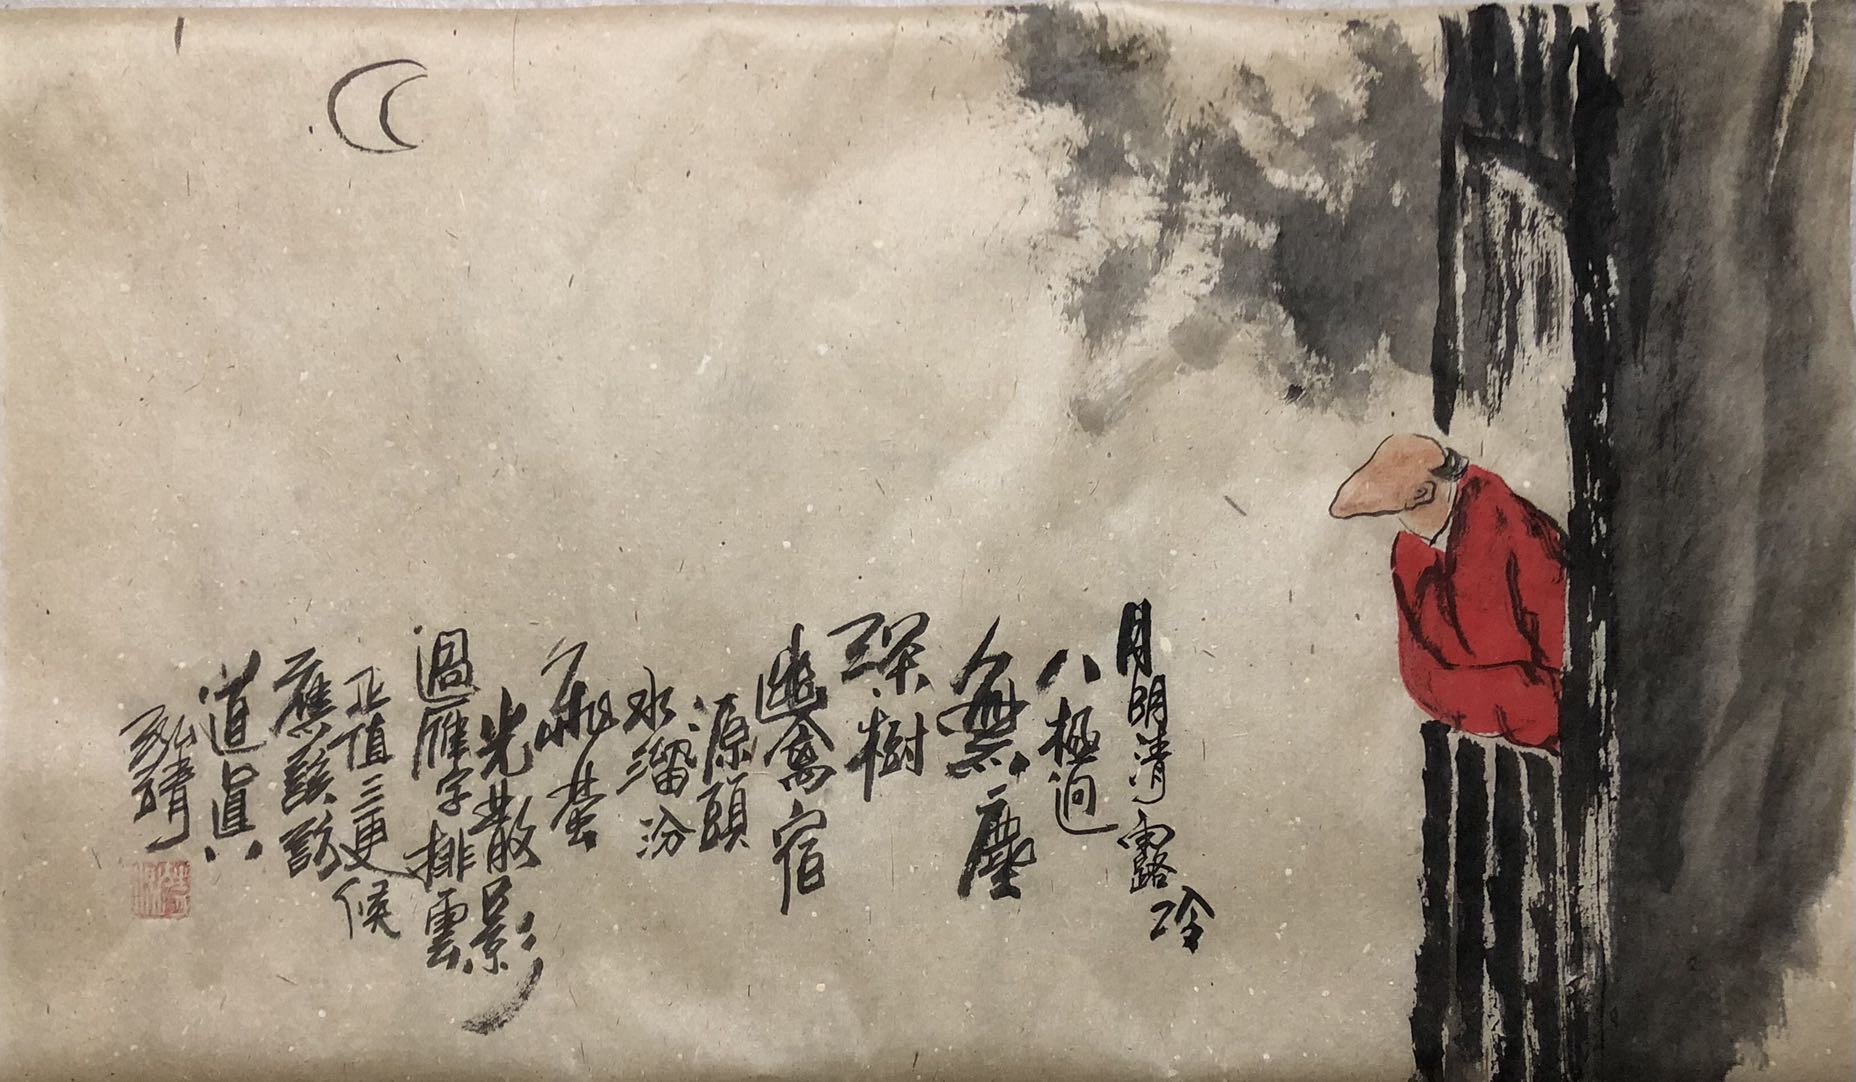 月明清露冷
八極迥
無塵
深樹
幽禽宿
源頭
水溜汾
飛螢
光散影
過雁字排雲
正值三更候
應該訪
道真
弘靖